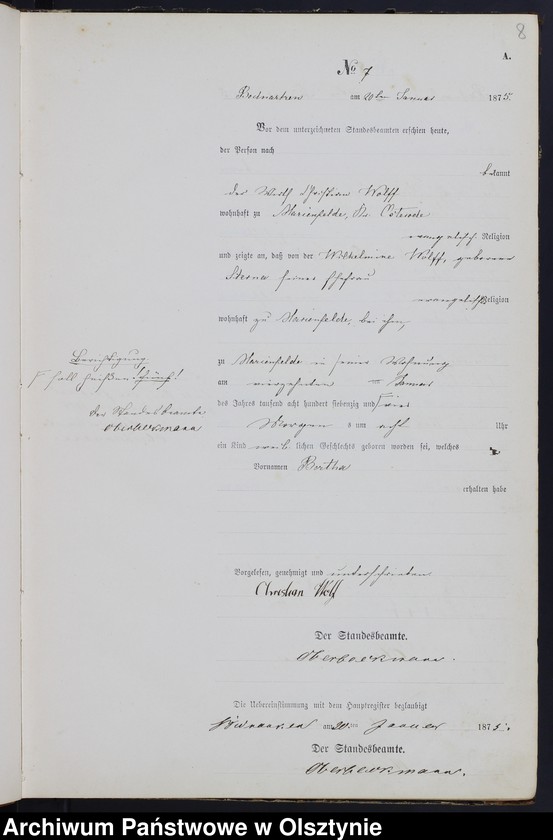 8
A.
No 7
am 20ten Januar 1875.
Vor dem unterzeichneten Standesbeamten erschien heute,
der Person nach
bekannt
der Wirth Christian Wolff
wohnhaft zu Marienfelde, Kr. Osterode
evangelisch Religion
und zeigte an, daß von der Wilhelmine Wolff, geborenen
seiner Ehefrau
evangelisch Religion
wohnhaft zu Marienfelde, bei ihm,
zu Marienfelde in seiner Wohnung
am vierzehnten Januar
des Jahres tausend acht hundert siebenzig und vier
Morgens um acht Uhr
ein Kind weiblichen Geschlechts geboren worden sei, welches
Vornamen Bertha
erhalten habe
Berichtigung
soll heißen "fünf"!
Der Standesbeamte
Oberbeckmann
Vorgelesen, genehmigt und unterschrieben
Christian Wolf
Der Standesbeamte.
Oberbeckmann.
Die Uebereinstimmung mit dem Hauptregister beglaubigt
am 20ten Januar 1875.
Der Standesbeamte.
Oberbeckmann.
Archiwum Państwowe w Olsztynie